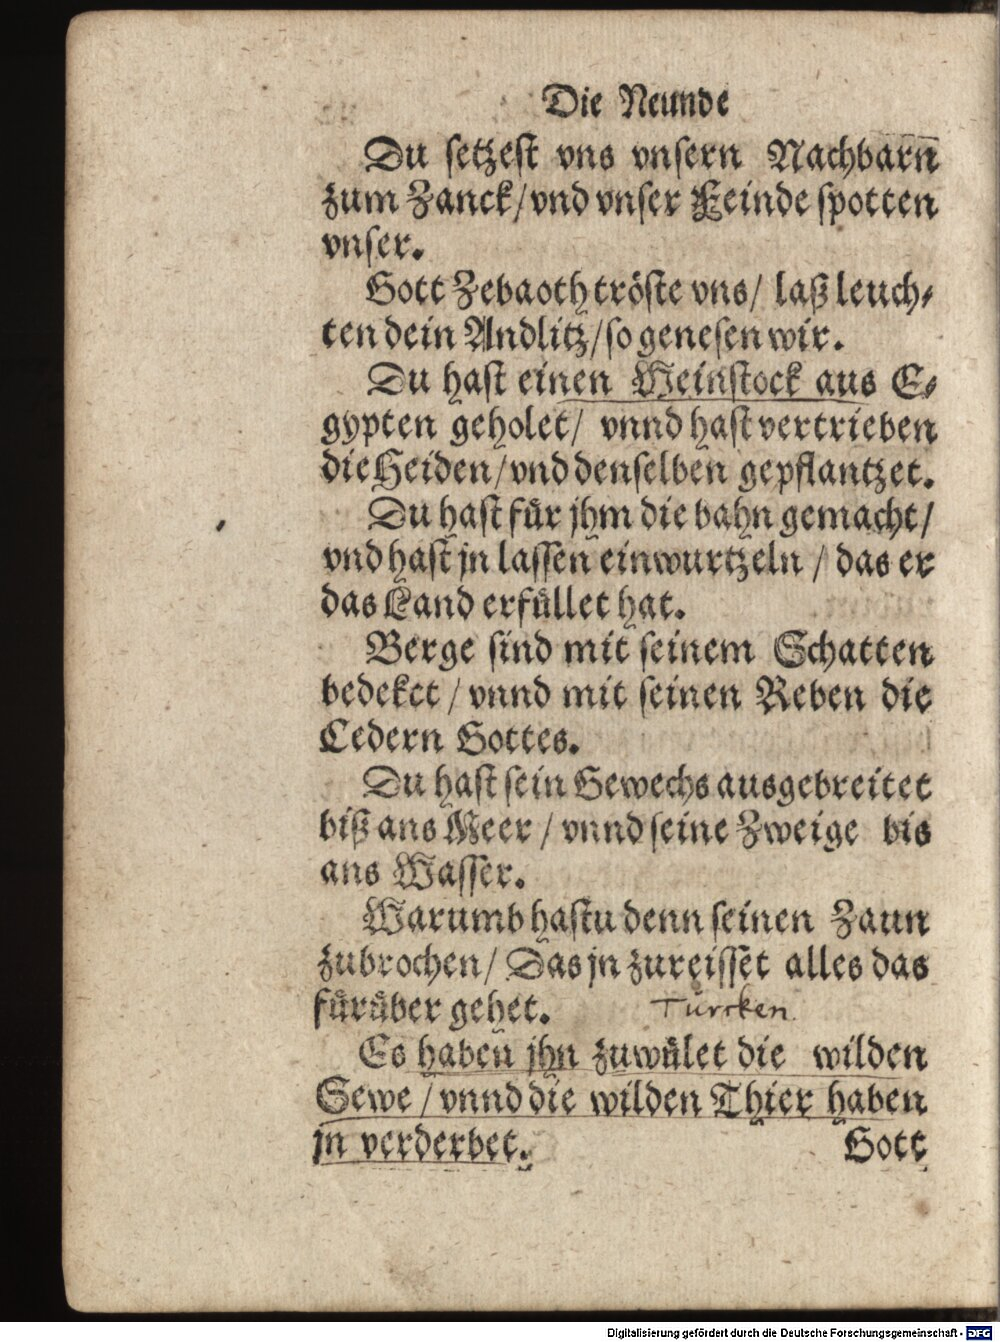 Die Neunde
Du setzest vns vnsern Nachbarn
zum Zanck/vnd vnser Feinde spotten
vnser.
Gott Zebaoth tröste vns/ laß leuch-
ten dein Andlitz/so genesen wir.
Du hast einen Weinstock aus E-
gypten geholet/ vnnd hast vertrieben
die Heiden/vnd denselben gepflantzet.
Du hast für jhm die bahn gemacht/
vnd hast jn lassen einwurtzeln / das er
das Land erfüllet hat.
Berge sind mit seinem Schatten
bedekct / vnnd mit seinen Reben die
Cedern Gottes.
Du hast sein Gewechs ausgebreitet
biß ans Meer / vnnd seine Zweige bis
ans Wasser.
Warumb hastu denn seinen Zaun
zubrochen/ Das jn zureisset alles das
fürüber gehet.
Türcken.
Es haben jhn zuwület die wilden
Sewe / vnnd die wilden Thier haben
jn verderbet.
Gott
Digitalisierung gefördert durch die Deutsche Forschungsgemeinschaft - DFG